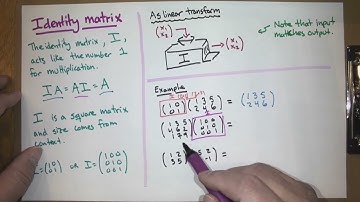 Identity matrix
The identity matrix, I,
acts like the number 1
for multiplication.
IA = AI = A
I is a square matrix
and size comes from
context.
I = (1 0
0 1) or I = (1 0 0
0 1 0
0 0 1)
As linear transform
(x₁
x₂)
I
(x₁
x₂)
Note that input
matches output.
Example
(1 0
0 1) (1 3 5
2 4 6) = (1 3 5
2 4 6)
=
=